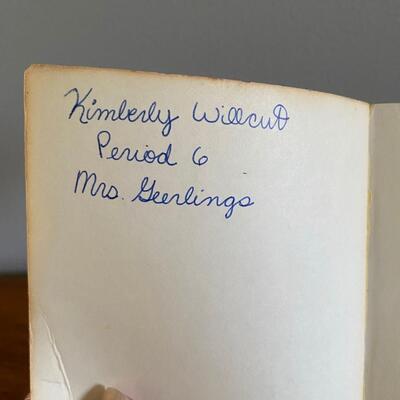 Kimberly Willcut
Period 6
Mrs. Geerlings